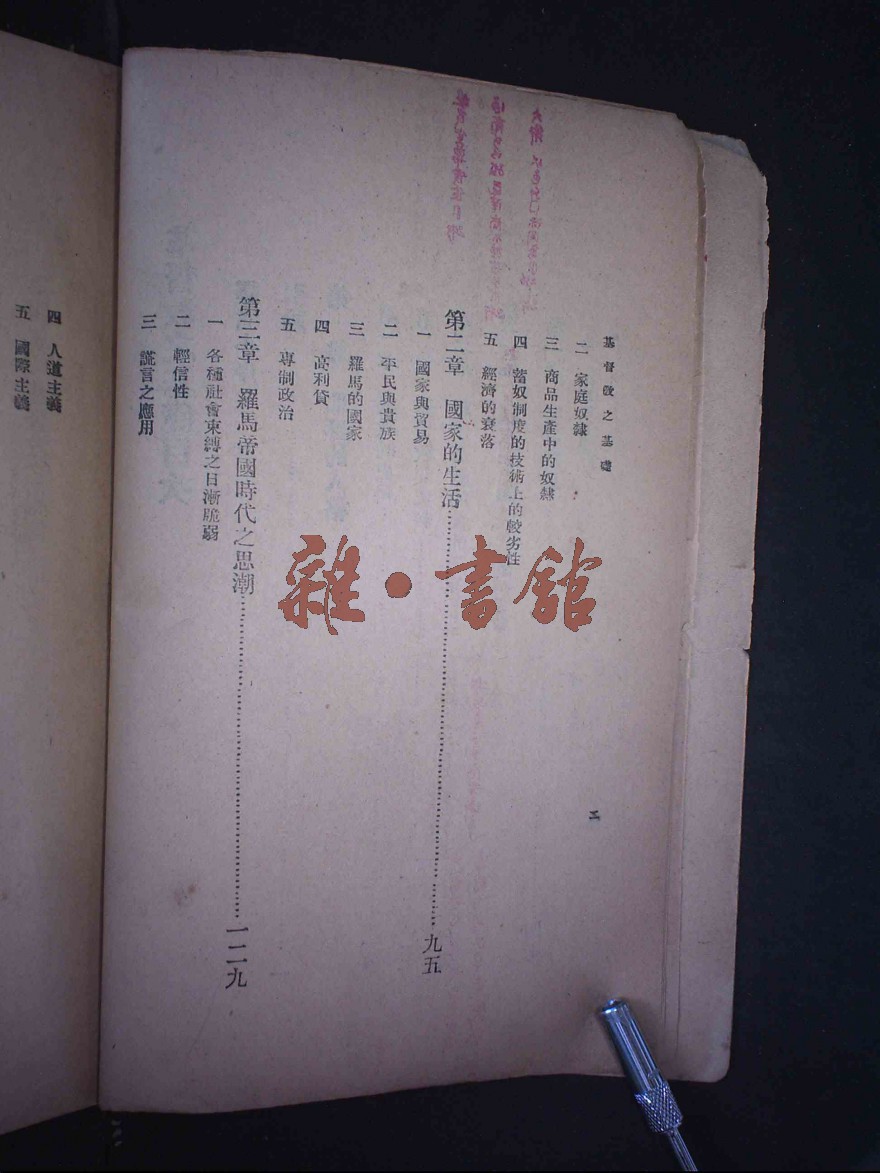 基督敎之基礎
二 家庭奴隸
三 商品生產中的奴隸
四 蓄奴制度的技術上的較劣性
五 經濟的衰落
第二章 國家的生活……九五
一 國家與貿易
二 平民與貴族
三 羅馬的國家
四 高利貸
五 專制政治
第三章 羅馬帝國時代之思潮……一二九
一 各種社會束縛之日漸脆弱
二 輕信性
三 謊言之應用
四 人道主義
五 國際主義
雜·書館